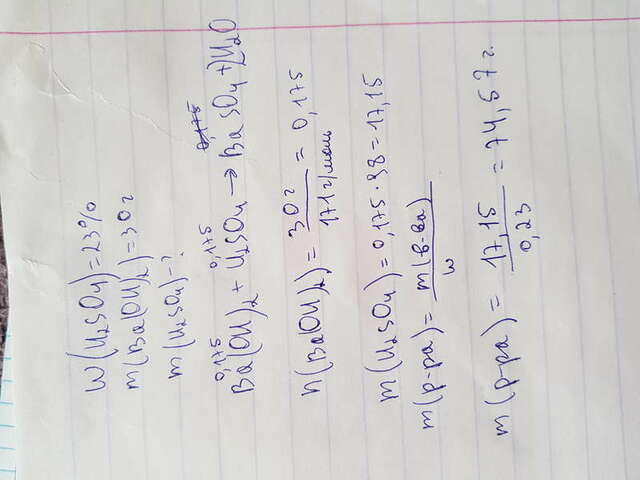 W(H₂SO₄)=23%
m(Ba(OH)₂)=30г
m(H₂SO₄)-?
0,175 0,175 0,175
Ba(OH)₂+H₂SO₄→BaSO₄+2H₂O
n(Ba(OH)₂)= 30г / 171г/моль = 0,175
m(H₂SO₄)=0,175·98=17,15
m(р-ра)= m(в-ва) / w
m(р-ра)= 17,15 / 0,23 = 74,57г.